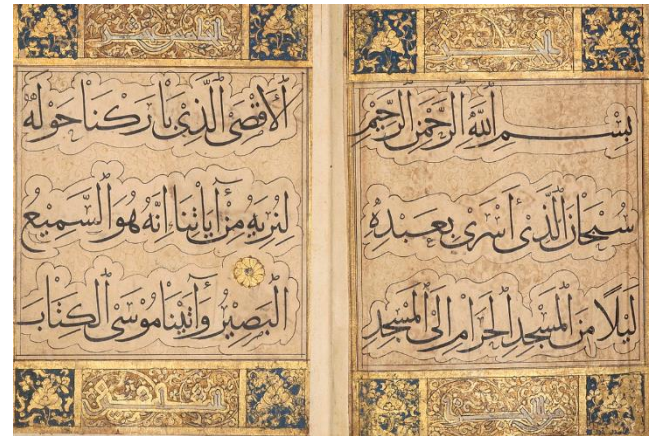 الجزء
بِسْمِ اللَّهِ الرَّحْمٰنِ الرَّحِيْمِ
سُبْحَانَ الَّذِىْ أَسْرٰى بِعَبْدِهِ
لَيْلًا مِنَ الْمَسْجِدِ الْحَرَامِ اِلَى الْمَسْجِدِ
الْاَقْصٰى الَّذِىْ بَارَكْنَا حَوْلَهُ
لِنُرِيَهُ مِنْ اٰيَاتِنَا اِنَّهُ هُوَ السَّمِيْعُ
الْبَصِيْرُ وَاٰتَيْنَا مُوْسَى الْكِتَابَ